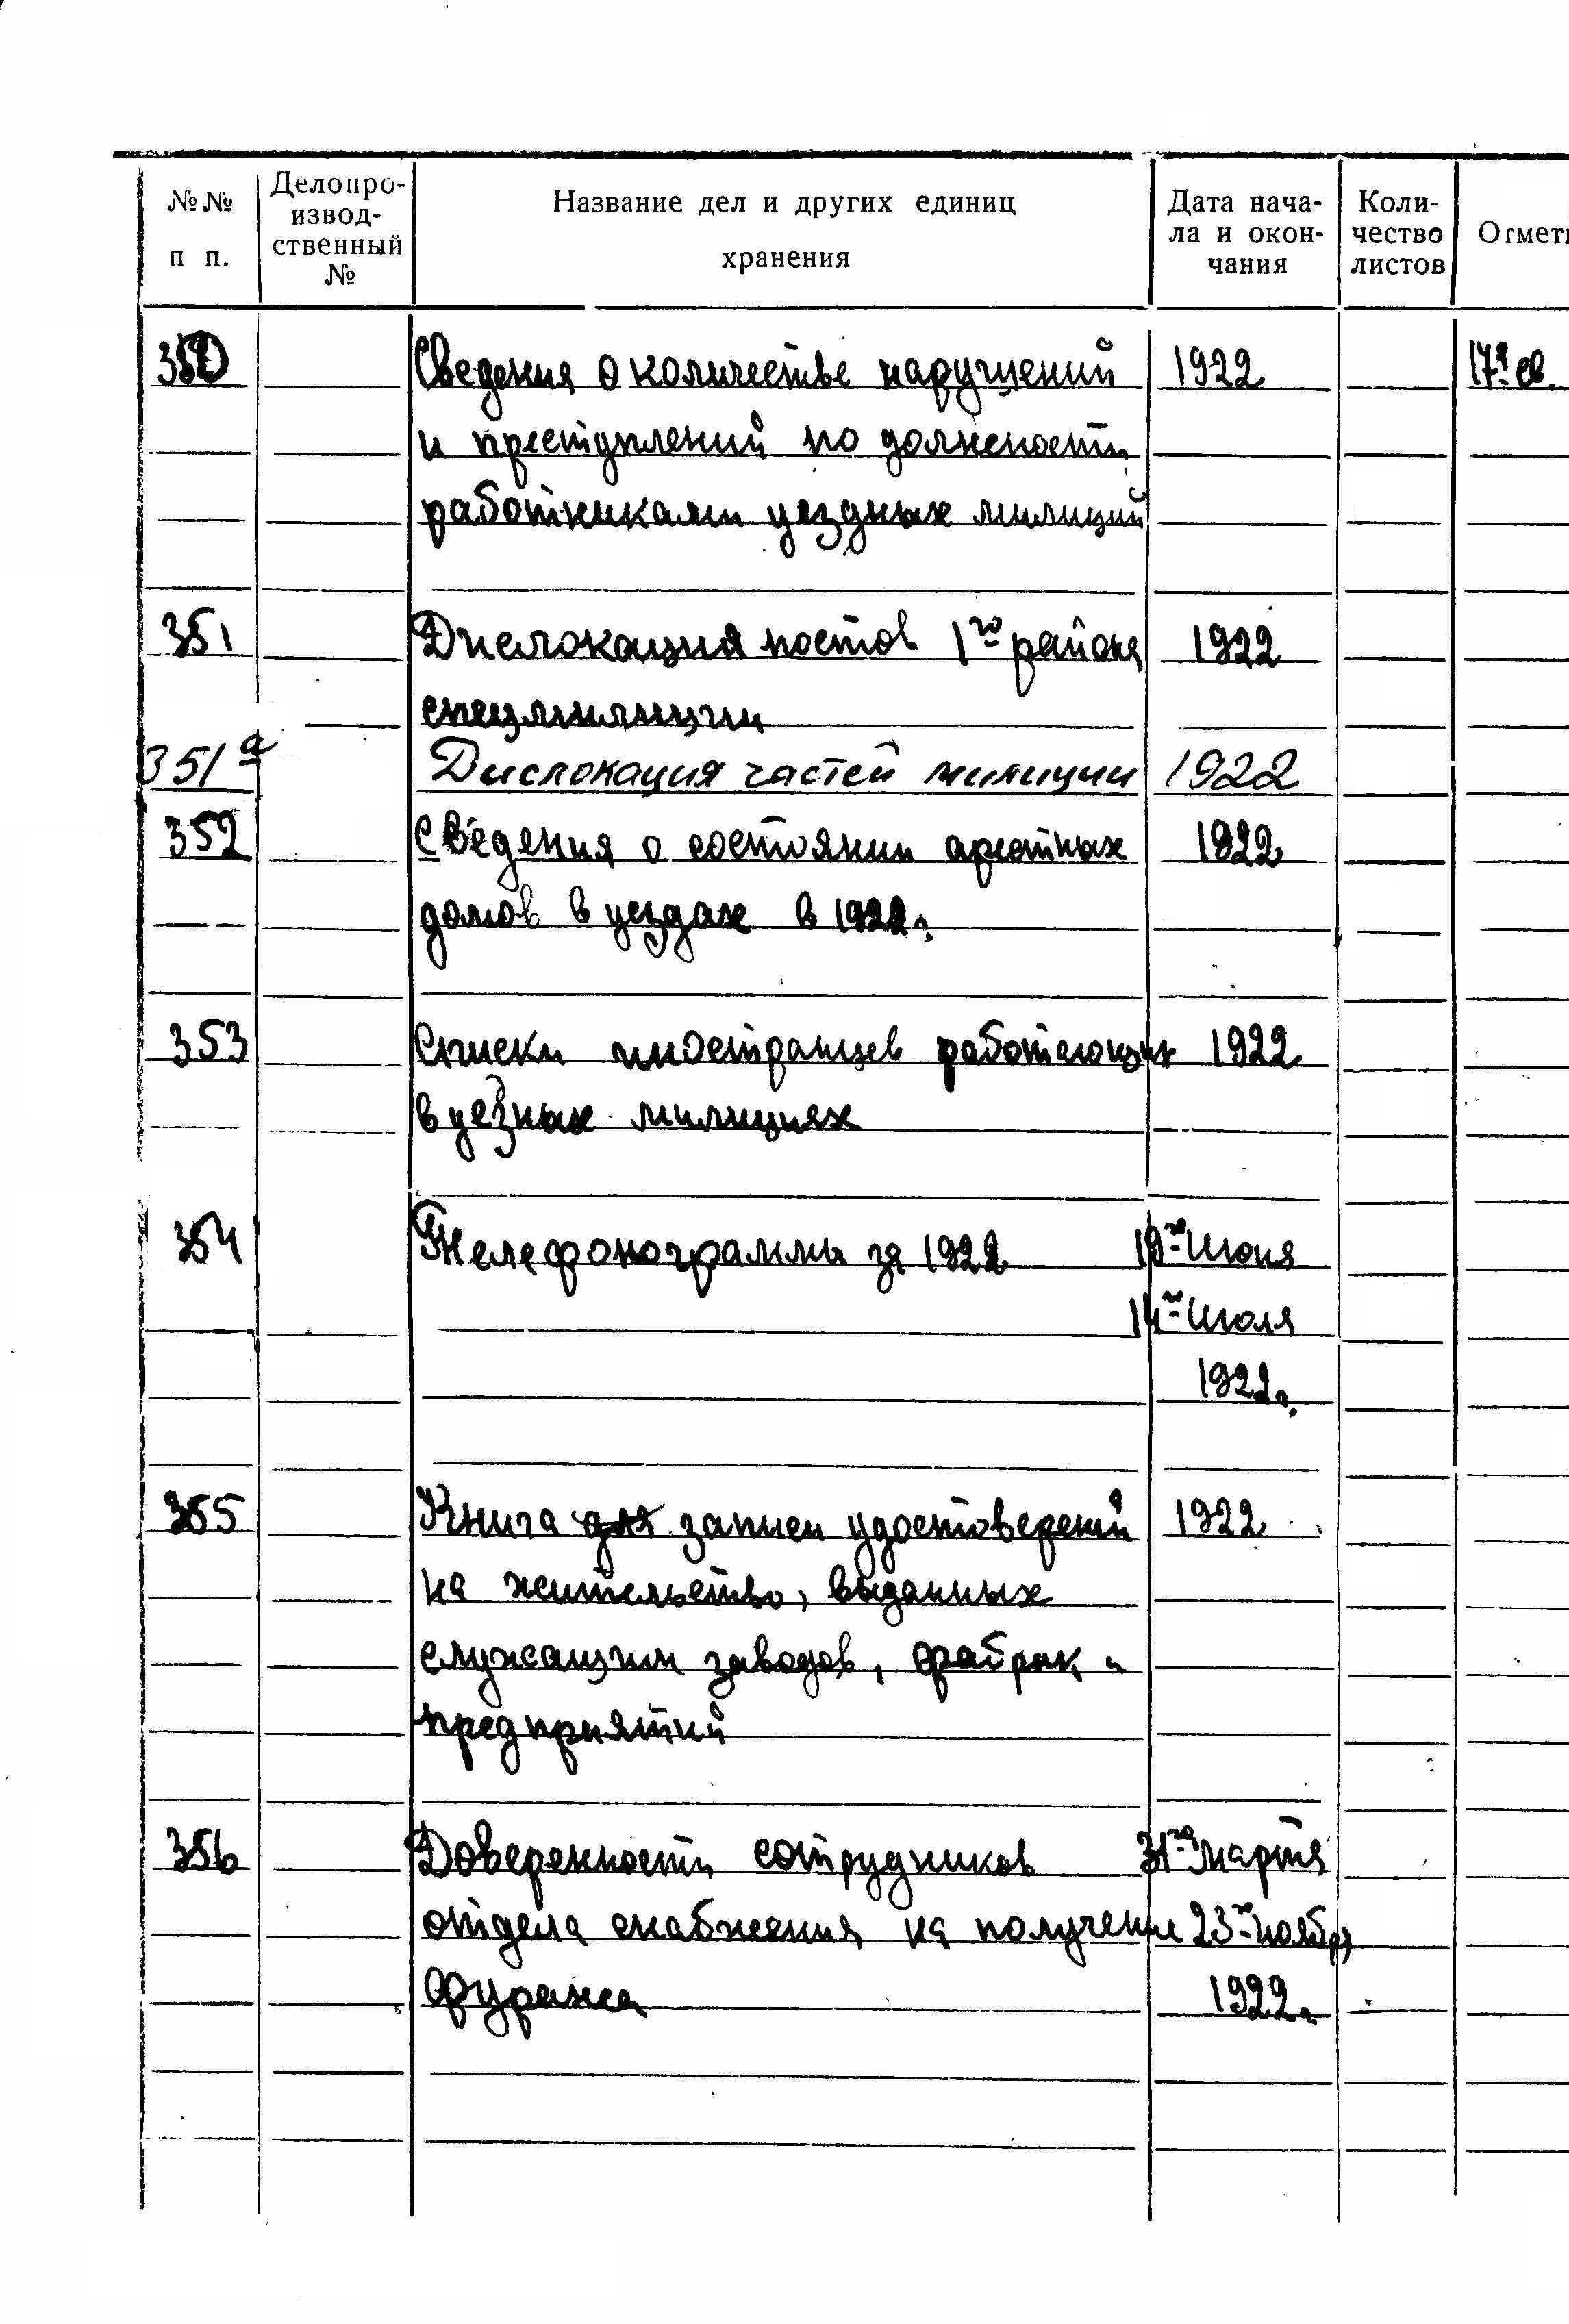 №№ п п.
Делопро-
извод-
ственный
№
Название дел и других единиц
хранения
Дата нача-
ла и окон-
чания
Коли-
чество
листов
Отмет
350 Сведения о количестве нарушений 1922
и преступлений по должности
работниками уездных милиций
351 Дислокация постов 1го района 1922
спецмилиции
351а Дислокация частей милиции 1922
352 Сведения о состоянии арестных 1922
домов в уездах в 1922г.
353 Списки иностранцев работающих 1922
в уезных милициях
354 Телефонограммы за 1922 19го Июня
14го Июля
1922г.
355 Книга для записи удостоверений 1922
на жительство, выданных
служащим заводов, фабрик и
предприятий
356 Доверенности сотрудников 31го марта
отдела снабжения на получение 23го ноября
фуража 1922г.